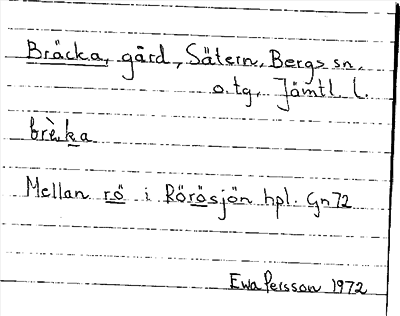 Bräcka, gård, Sätern, Bergs sn,
o. tg, Jämtl l.
brèka
Mellan rö i Rörösjön hpl. Gn 72
Ewa Persson 1972